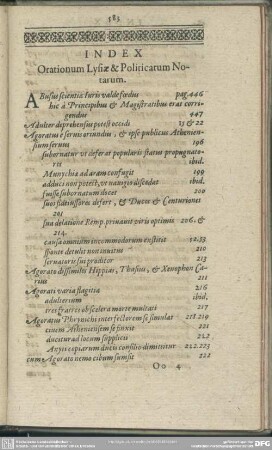 183
INDEX
Orationum Lysiæ & Politicarum No-
tarum.
ABusus scientia Iuris valde fœdus pag. 446
hic à Principibus & Magistratibus erat corri-
gendus 447
Adulter deprehensus potest occidi 15 & 22
Agoratus è servis oriundus, & ipse publicus Athenien-
sium servus 196
subornatur ut deferat popularis status propugnato-
res ibid.
Munychia ad aram confugit 199
adduci non potest, ut navigio discedat ibid.
fuisse subornatum docet 200
suos fideiussores defert, & Duces & Centuriones
201
sua delatione Remp. privavit viris optimis 206. &
214
causa omnium incommodorum exstitit
sponte detulit non invitus 210
servatoris sui proditor 213
Agorato dissimiles Hippias, Thasius, & Xenophon Ca-
rius 211
Agorati varia flagitia 216
adulterium ibid.
tres fratres ob scelera morte mulctati 217
Agoratus Phrynichi interfectorem se simulat 218.219
civem Atheniensem se finxit 221
ducitur ad locum supplicii
Anyti copiarum ducis consilio dimittitur 222.223
cum Agorato nemo cibum sumsit
Oo 4